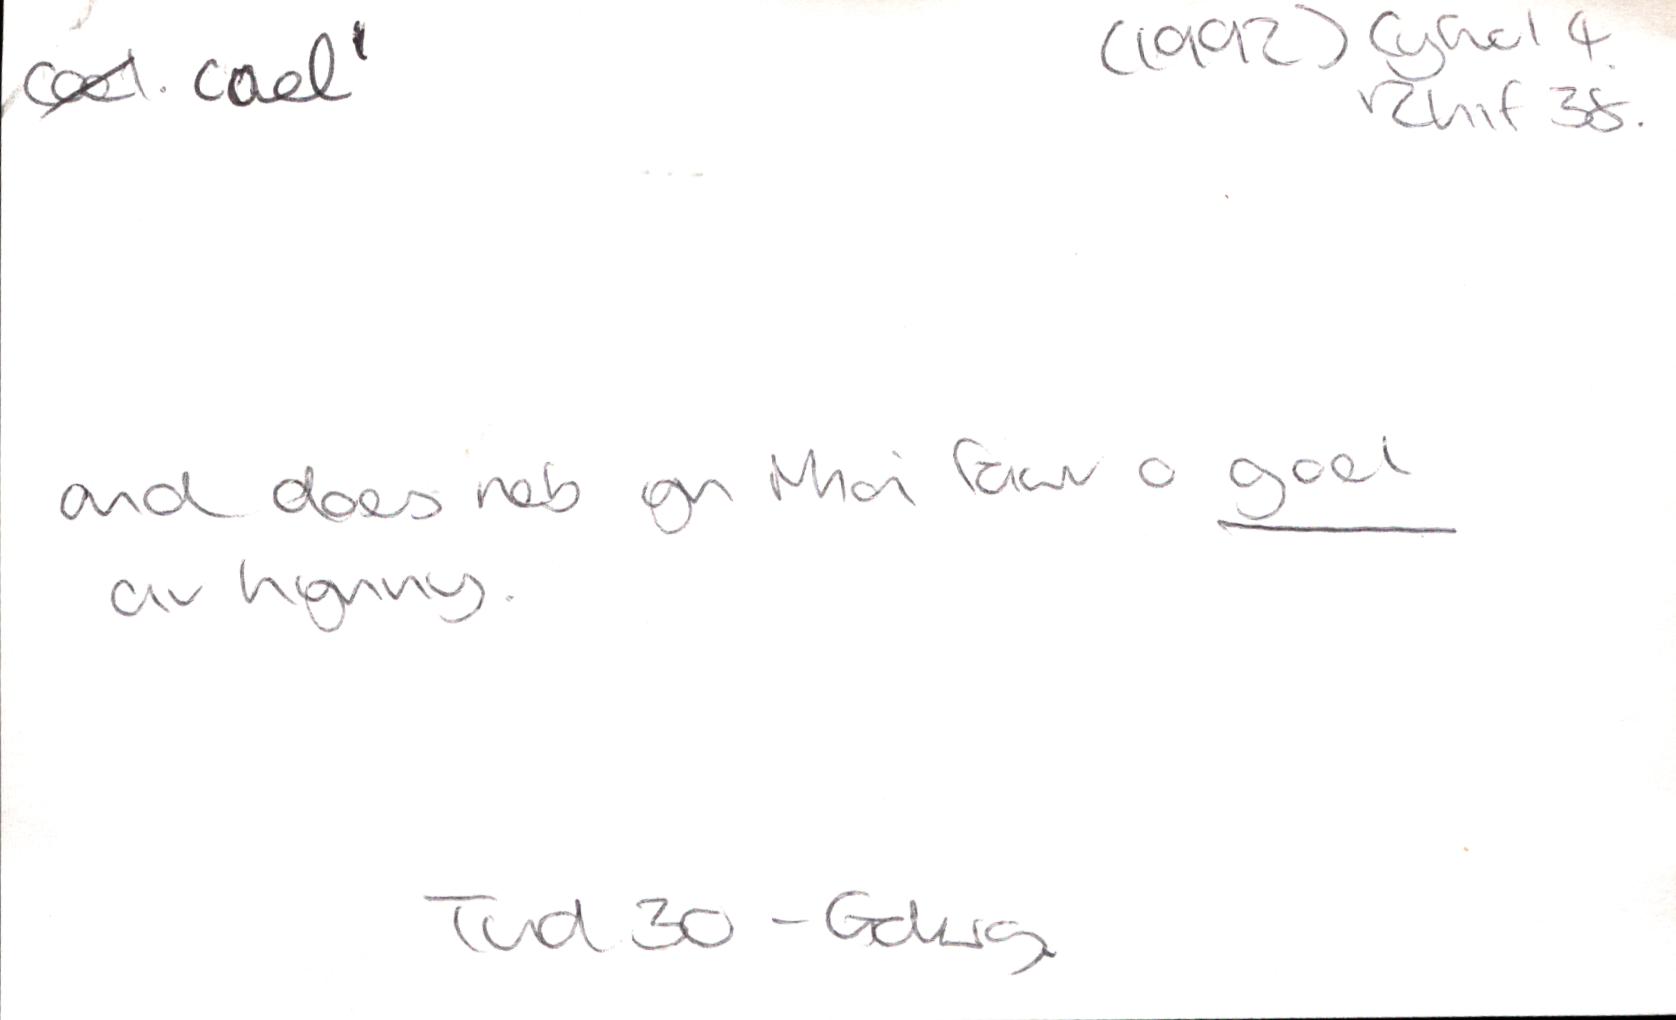 cael. cael¹
(1992) Cyfrol 4.
Rhif 38.
ond does neb yn rhoi fawr o goel
ar hynny.
Tud 30 - Golwg